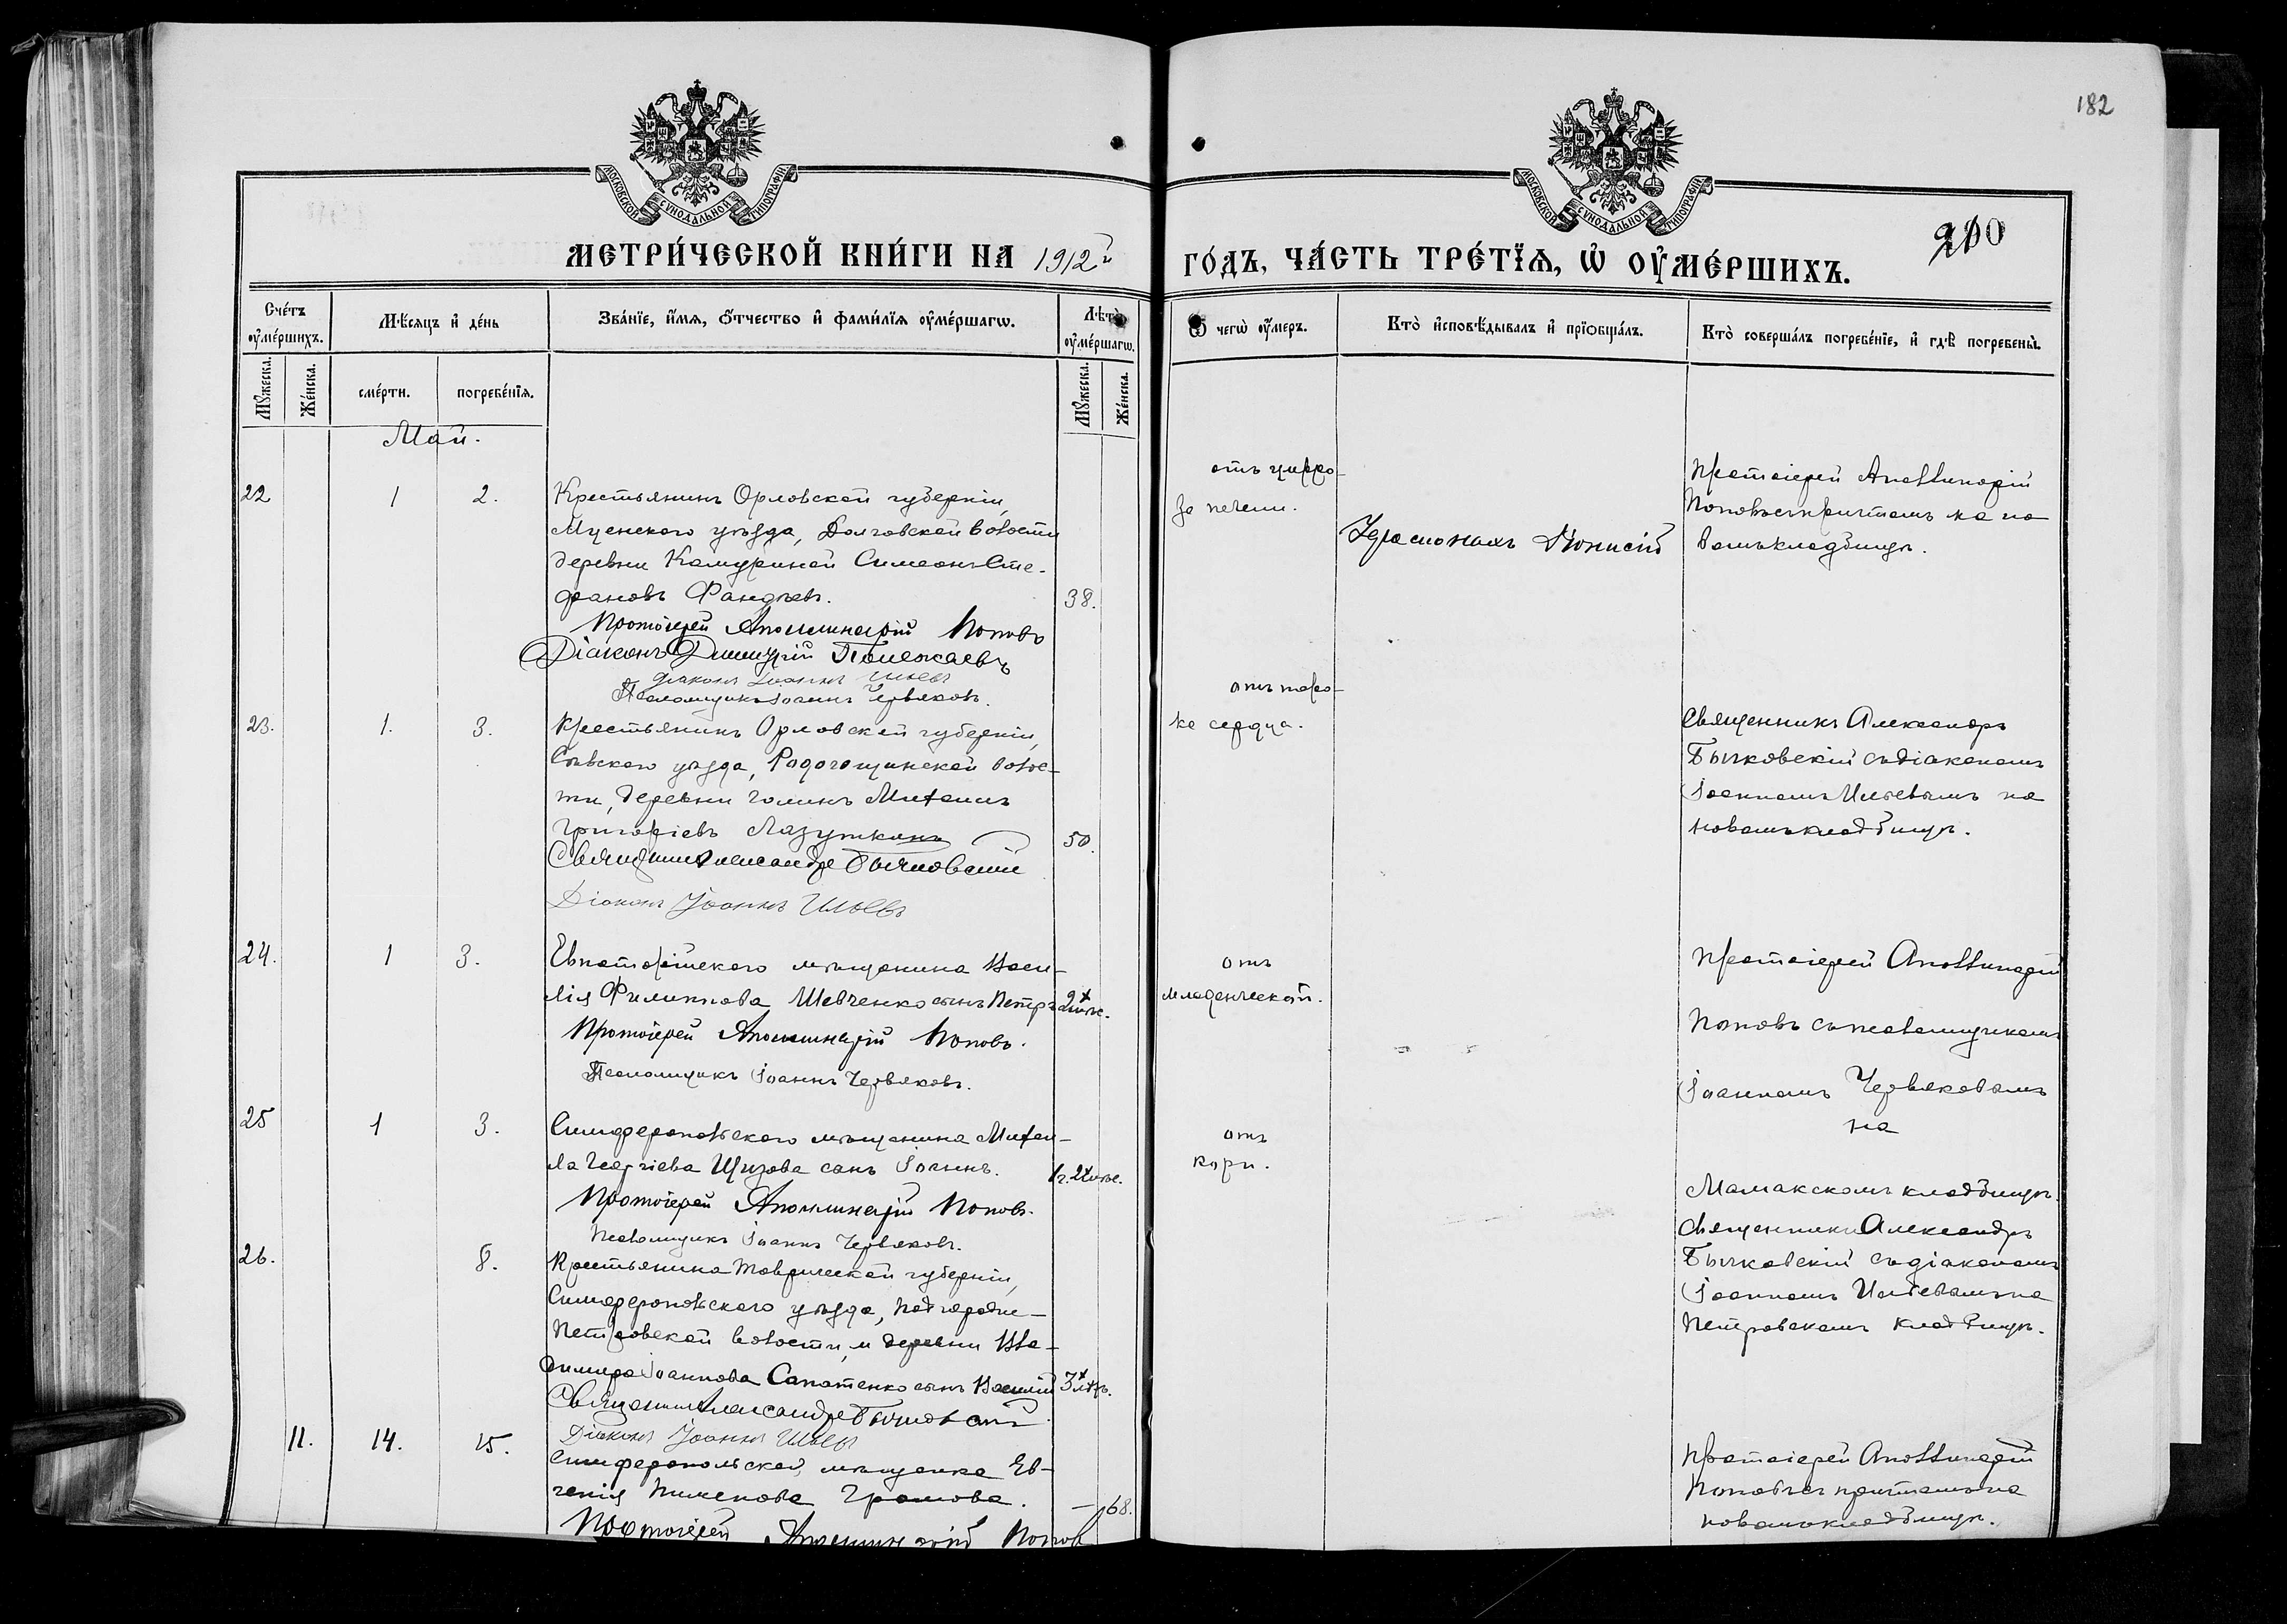 182
МОСКОВСКОЙ СУНОДАЛЬНОЙ ТИПОГРАФІИ
МОСКОВСКОЙ СУНОДАЛЬНОЙ ТИПОГРАФІИ
МЕТРИ́ЧЕСКОЙ КНИ́ГИ НА 1912й
ГО́ДЪ, ЧА́СТЬ ТРЕ́ТЇѦ, Ѽ ОУМЕ́РШИХЪ.
Сче́тъ оумершихъ.
Мѣ́сѧцъ и҆ де́нь
Зва́нїе, и҆́мѧ, ѻ҆́тчество и҆ фами́лїѧ оумершагѡ.
Лѣ́то оумершагѡ.
Ѿ чегѡ̀ оумеръ.
Кто̀ и҆сповѣ́дывалъ и҆ прїѡбща́лъ.
Кто̀ соверша́лъ погребе́нїе, и҆ гдѣ̀ погребены̀.
Мꙋжеска.
Же́нска.
сме́рти.
погребе́нїѧ.
Мꙋжеска.
Же́нска.
Май.
22
1
2.
Крестьянинъ Орловской губерніи,
Мценскаго уѣзда, Долговской волости
деревни Камуриной Симеонъ Сте-
фановъ Фандѣевъ.
38.
Протоіерей Аполлинарій Поповъ
Діаконъ Димитрій Полежаевъ
Діаконъ Іоаннъ Ильевъ
Псаломщикъ Іоаннъ Червяковъ.
отъ цирро-
за печени.
Іеромонахъ Діонисій
Протоіерей Аполлинарій
Поповъ съ причтомъ на но
вомъ кладбищѣ.
23.
1.
3.
Крестьянинъ Орловской губерніи,
Сѣвскаго уѣзда, Радогощинской волос-
ти, деревни Михаилъ
Григоріевъ Лазуткинъ
50.
Священникъ Александръ Бычковскій
Діаконъ Іоаннъ Ильевъ
отъ поро-
ка сердца.
Священникъ Александръ
Бычковскій съ діакономъ
Іоанномъ Ильевымъ на
новомъ кладбищѣ.
24.
1
3.
Евпаторійскаго мѣщанина Васи-
лія Филиппова Шевченко сынъ Петръ
Протоіерей Аполлинарій Поповъ.
Псаломщикъ Іоаннъ Червяковъ.
отъ
младенческой.
Протоіерей Аполлинарій
Поповъ съ псаломщикомъ
Іоанномъ Червяковымъ
на
Мамакскомъ кладбищѣ.
25
1
3.
Симферопольскаго мѣщанина Михаи-
ла Георгіева сынъ Іоаннъ.
Протоіерей Аполлинарій Поповъ.
Псаломщикъ Іоаннъ Червяковъ.
отъ
кори.
26.
8.
Крестьянина Таврической губерніи,
Симферопольскаго уѣзда, Подгородне-
Петровской волости, и деревни Вла-
димира Іоаннова Сапатенко сынъ Василій
Священникъ Александръ Бычковскій
Діаконъ Іоаннъ Ильевъ
Священникъ Александръ
Бычковскій съ діакономъ
Іоанномъ Ильевымъ на
Петровскомъ кладбищѣ.
11.
14.
15.
Симферопольская мѣщанка Ев-
генія Пименова Громова.
68.
Протоіерей Аполлинарій Поповъ
Протоіерей Аполлинарій
Поповъ съ причтомъ на
новомъ кладбищѣ.